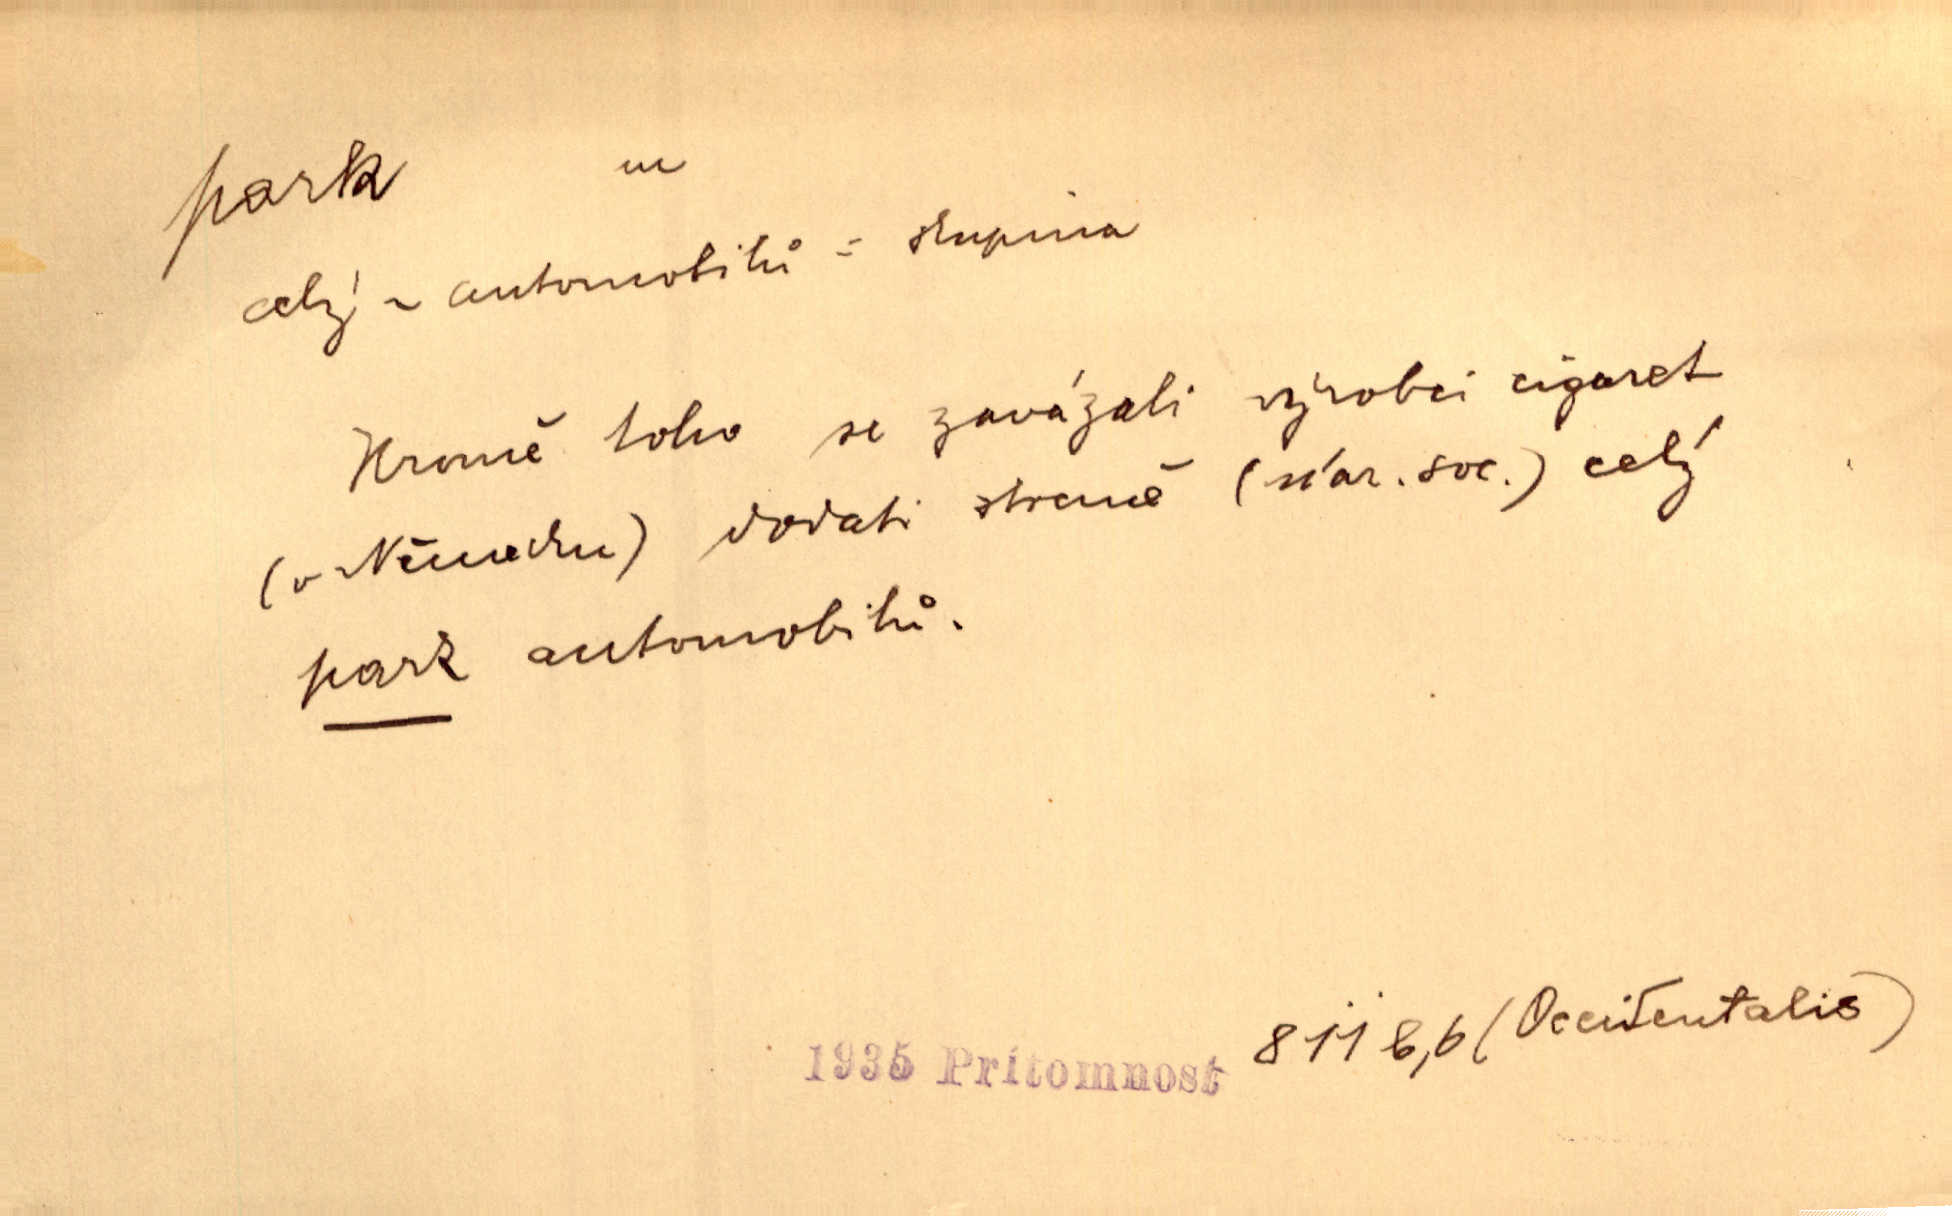 park m
celý ~ automobilů = skupina
Kromě toho se zavázali výrobci cigaret
(v Německu) dodati straně (nár. soc.) celý
park automobilů.
1935 Přítomnost 811 b, (Occidentalis)